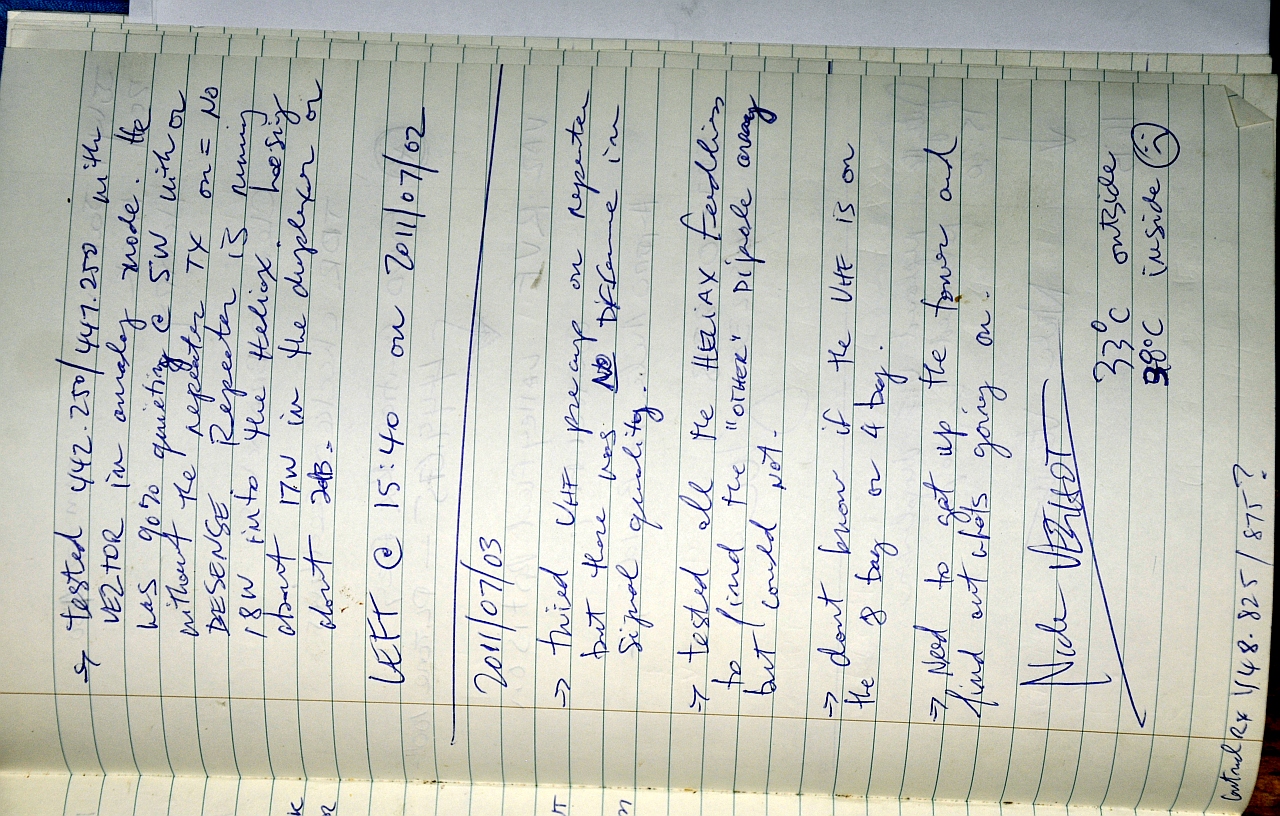 → tested 442.250/447.250 with
VE2TOR in analog mode. He
was 90% quieting @ 5W with or
without the repeater TX on = NO
DESENSE Repeater is running
18W into the Heliax. loosig
about 17W in the duplexer or
about 2dB.
LEFT @ 15:40 on 2011/07/02
2011/07/03
→ tried VHF preamp on repeater
but there was NO Difference in
signal quality.
→ tested all the HELIAX feedlines
to find the "OTHER" Dipole array
but could not.
→ dont know if the VHF is on
the 8 bay or 4 bay.
→ Need to get up the tower and
find out whats going on.
33°C outside
38°C inside :)
Control Rx 148.825/875?
K
r
n